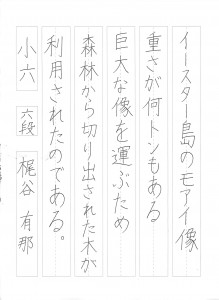 イースター島のモアイ像
重さが何トンもある
巨大な像を運ぶため
森林から切り出された木が
利用されたのである。
小六 六段 梶谷 有那